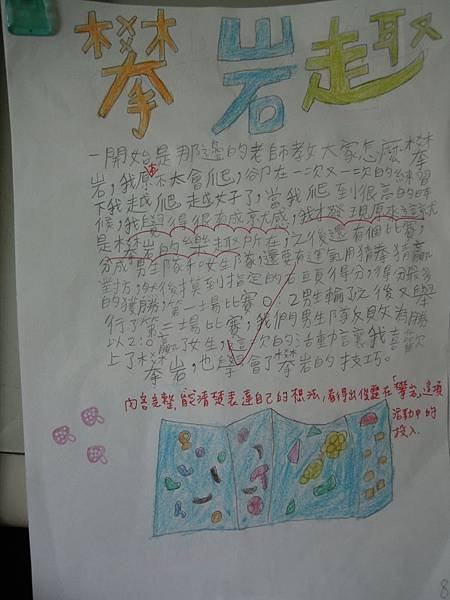 攀岩趣
一開始是那邊的老師教大家怎麼攀
岩,我原本不太會爬,卻在一次又一次的練習
下我越爬,越起勁了,當我爬到很高的時
候,我覺得很有成就感,我才發現原來這就
是攀岩的樂趣所在,之後還有個比賽,
分成男生隊和女生隊,還要有運氣用猜拳猜贏
對方,然後摸到指定的石頭得分,得分最多
的獲勝,第一場比賽0:2男生輸了之後又舉
行了第二場比賽,我們男生隊反敗為勝
以2:0贏了女生,這次的活動讓我喜歡
上了攀岩,也學會了攀岩的技巧。
內容完整,能清楚表達自己的想法,看得出俊霆在「攀岩」這項
活動中的
投入.
8